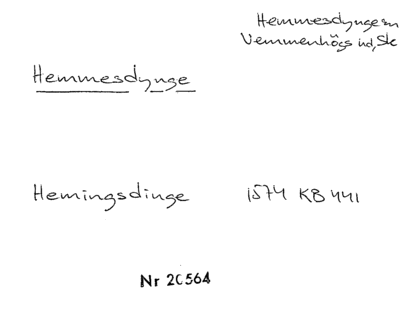 Hemmesdynge sn
Vemmenhögs hd, Sk
Hemmesdynge
Hemingsdinge 1574 KB 441
Nr 20564